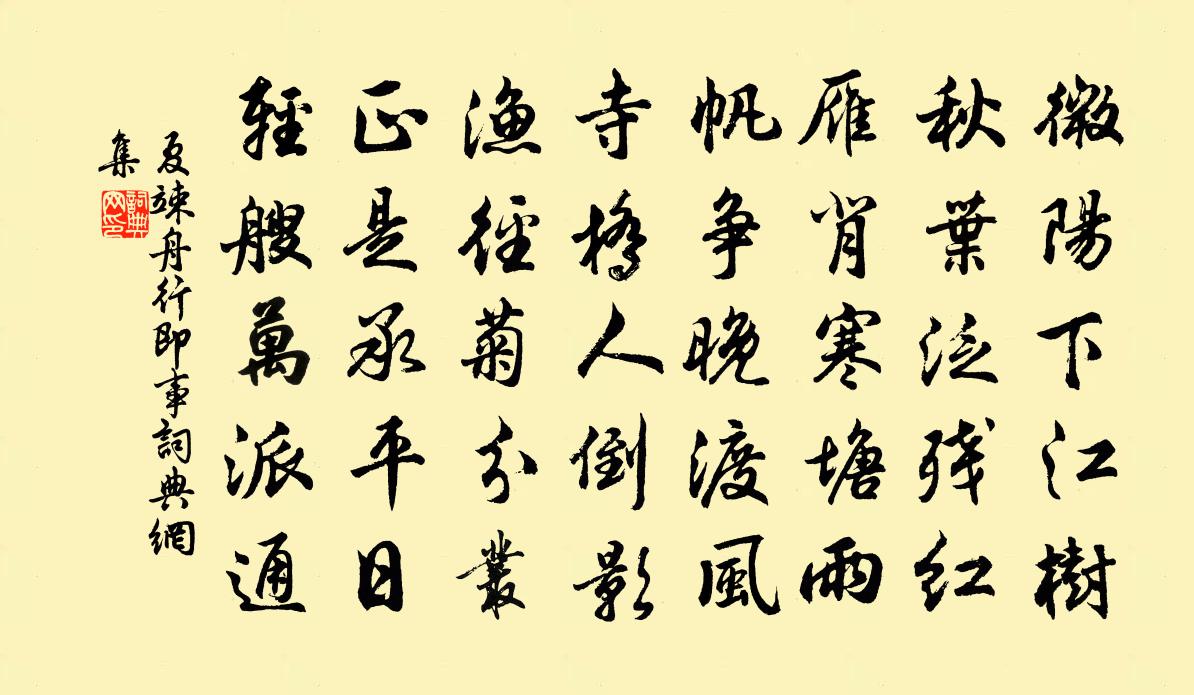 微陽下江樹
秋葉泛残紅
雁背寒塘雨
帆争晚渡風
寺橋人倒影
漁径菊分叢
正是承平日
輕艘萬派通
夏竦舟行即事詞典網
集
詞典網印